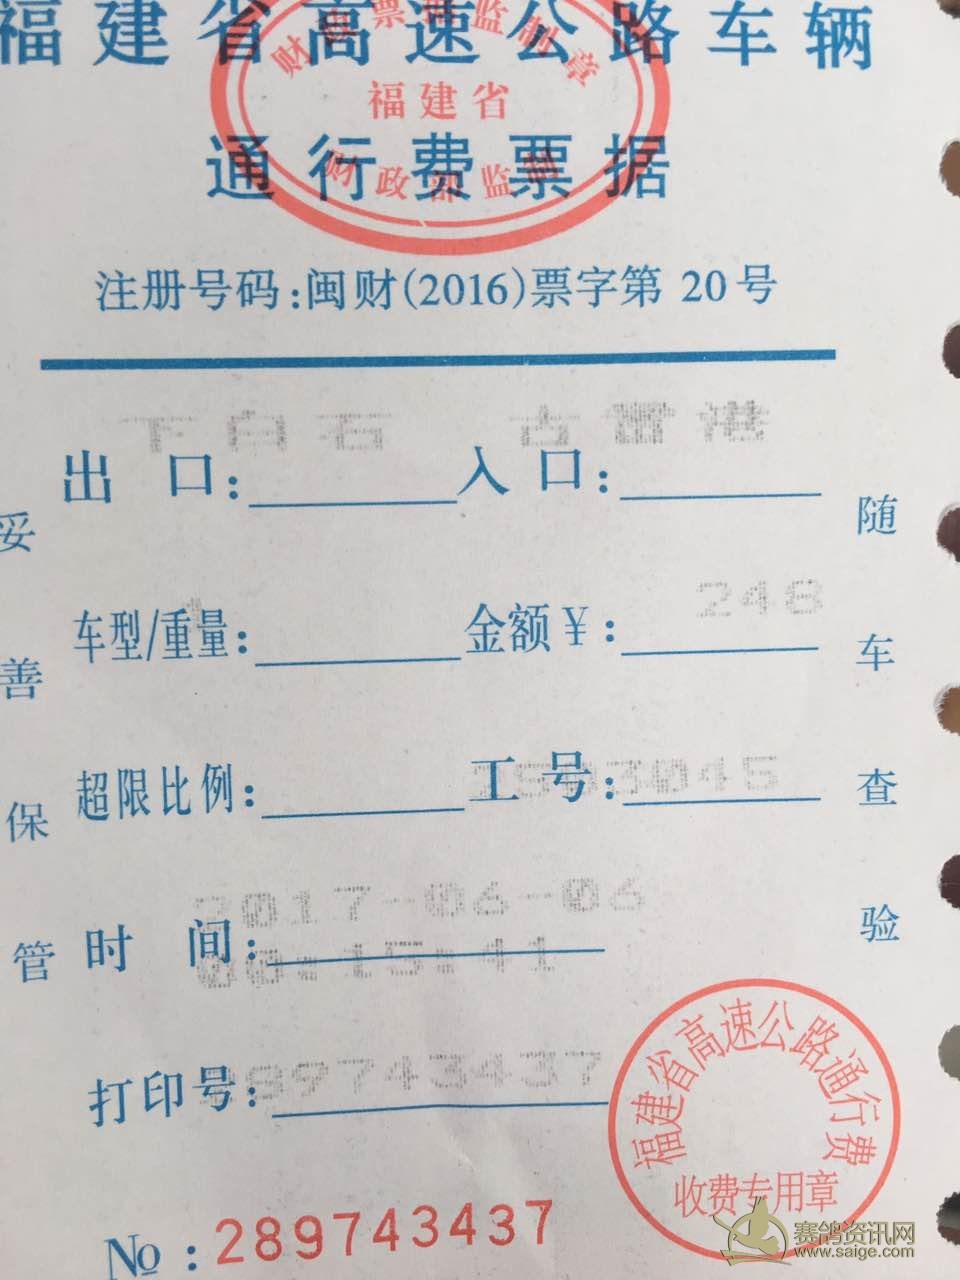 福建省高速公路车辆
通行费票据
财政票据监制章
福建省
财政部监制
注册号码:闽财(2016)票字第 20号
下白石 古雷港
出 口: 入 口:
248
车型/重量: 金额¥:
超限比例: 工 号: 3045
2017-06-06
时 间:
00:15:41
打印号: 289743437
No : 289743437
妥善保管
随车查验
福建省高速公路通行费
收费专用章
赛鸽资讯网
www.saige.com